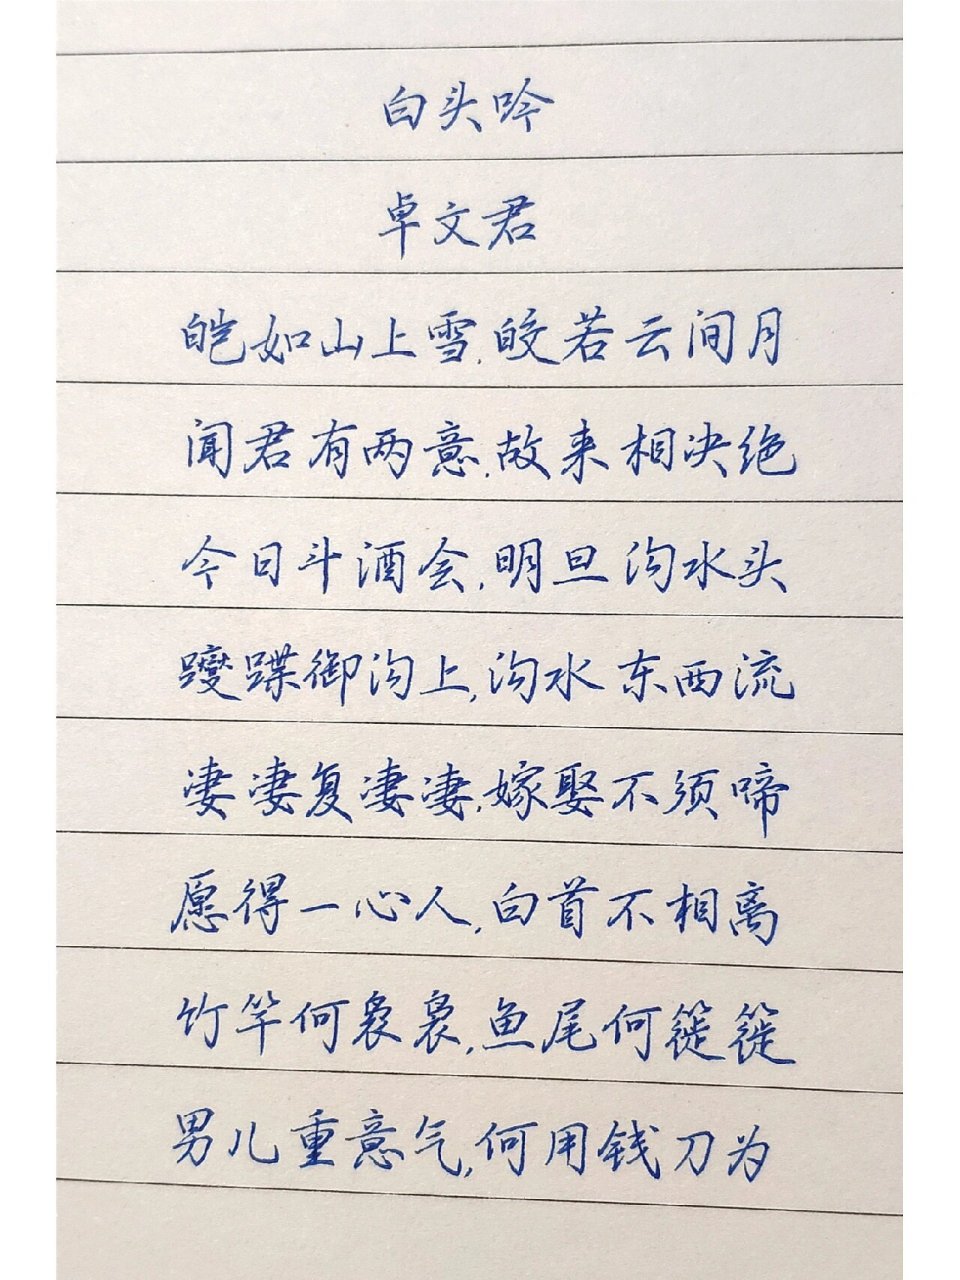 白头吟
卓文君
皑如山上雪,皎若云间月
闻君有两意,故来相决绝
今日斗酒会,明旦沟水头
躞蹀御沟上,沟水东西流
凄凄复凄凄,嫁娶不须啼
愿得一心人,白首不相离
竹竿何袅袅,鱼尾何簁簁
男儿重意气,何用钱刀为